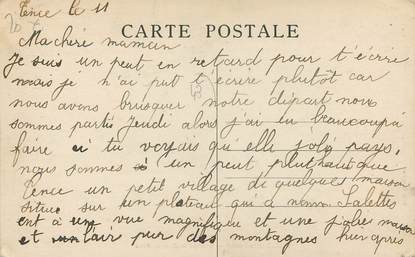 Tence le 11
CARTE POSTALE
Ma cheré maman
Je suis un peut en retard pour t'écrire
mais je n'ai put t'écrire plutôt car
nous avons brusquer notre départ nous
sommes partis Jeudi alors j'ai eu beaucoup a
faire si tu voyais qu'elle joli pays,
nous sommes a un peut plus haut que
Tence un petit village de quelques maison
situé sur un plateau qui a nom Salettes
ont à une vue magnifique et une jolie maison
et un air pur des montagnes hier après